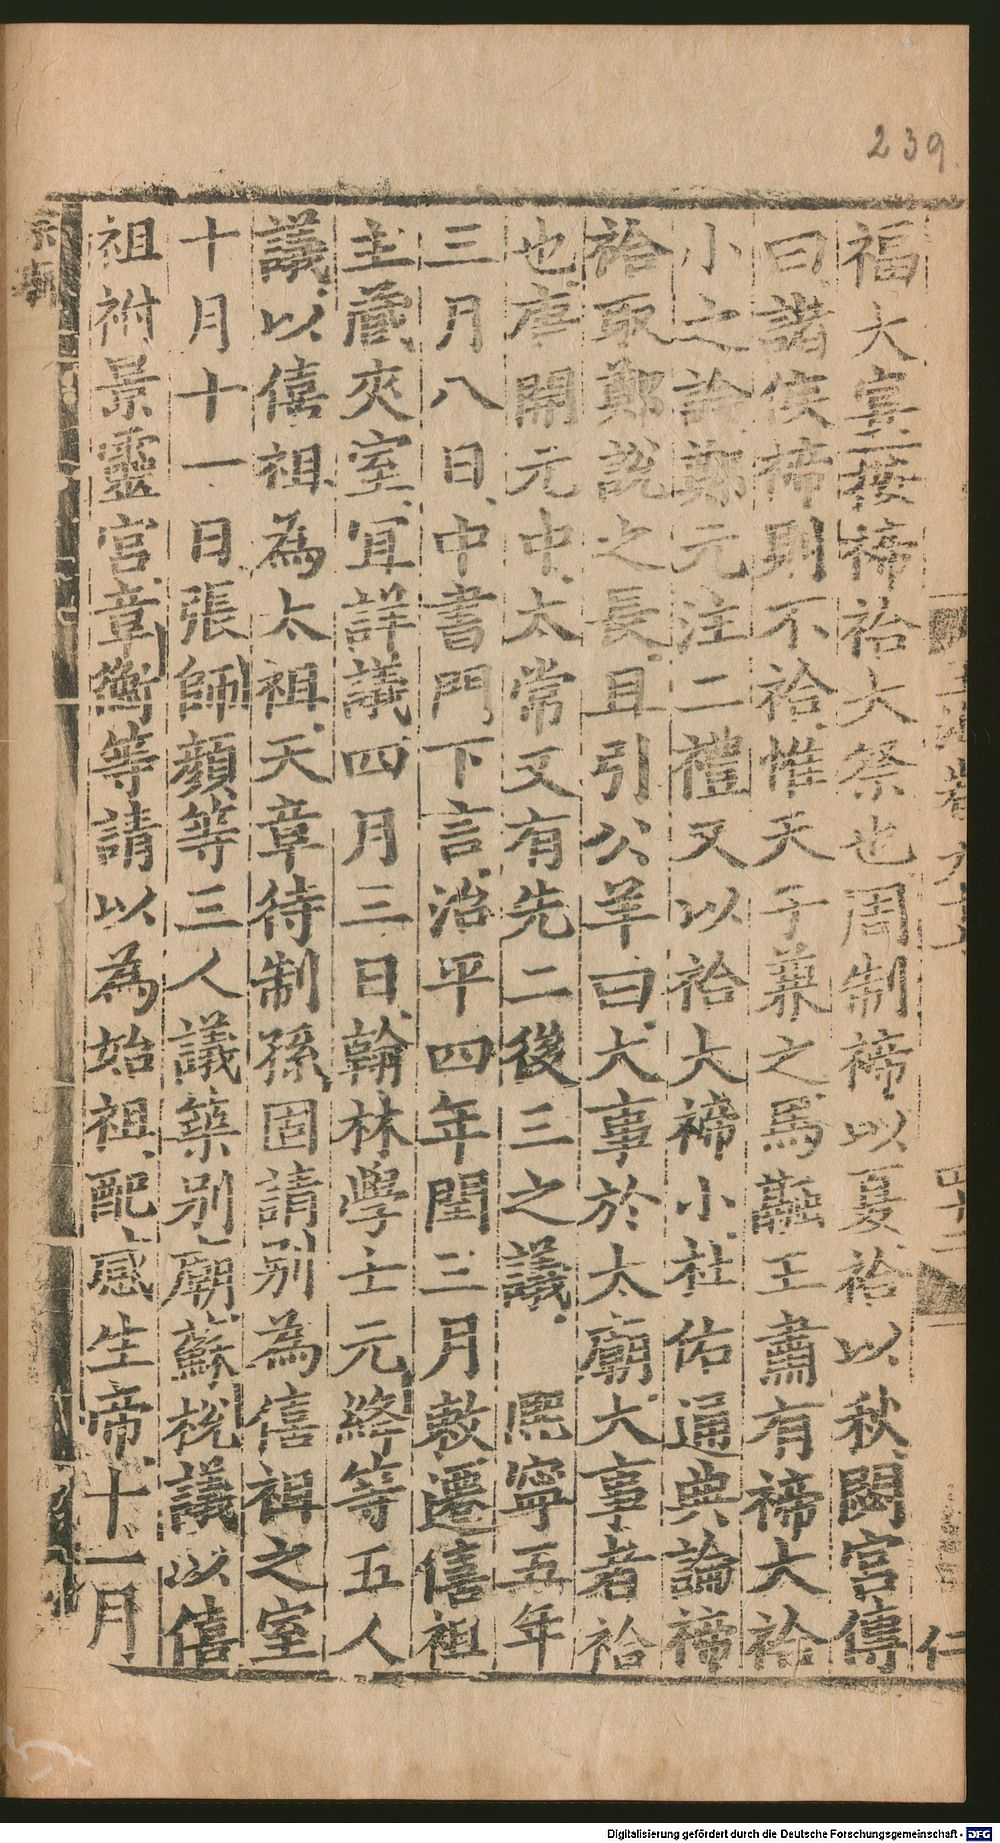 239.
福大寔按禘祫大祭也周制禘以夏祫以秋閟宮傳
曰諸侯禘則不祫惟天子兼之馬融王肅有禘大祫
小之論鄭元注二禮又以祫大禘小杜佑通典論禘
祫取鄭說之長且引公羊曰大事於太廟大事者祫
也唐開元中太常又有先二後三之議 熙寧五年
三月八日中書門下言治平四年閏三月敕遷僖祖
主藏夾室宜詳議四月三日翰林學士元絳等五人
議以僖祖為太祖天章待制孫固請別為僖祖之室
十月十一日張師顏等三人議築別廟蘇梲議以僖
祖祔景靈宮章衡等請以為始祖配感生帝十一月
仁
Digitalisierung gefördert durch die Deutsche Forschungsgemeinschaft - DFG